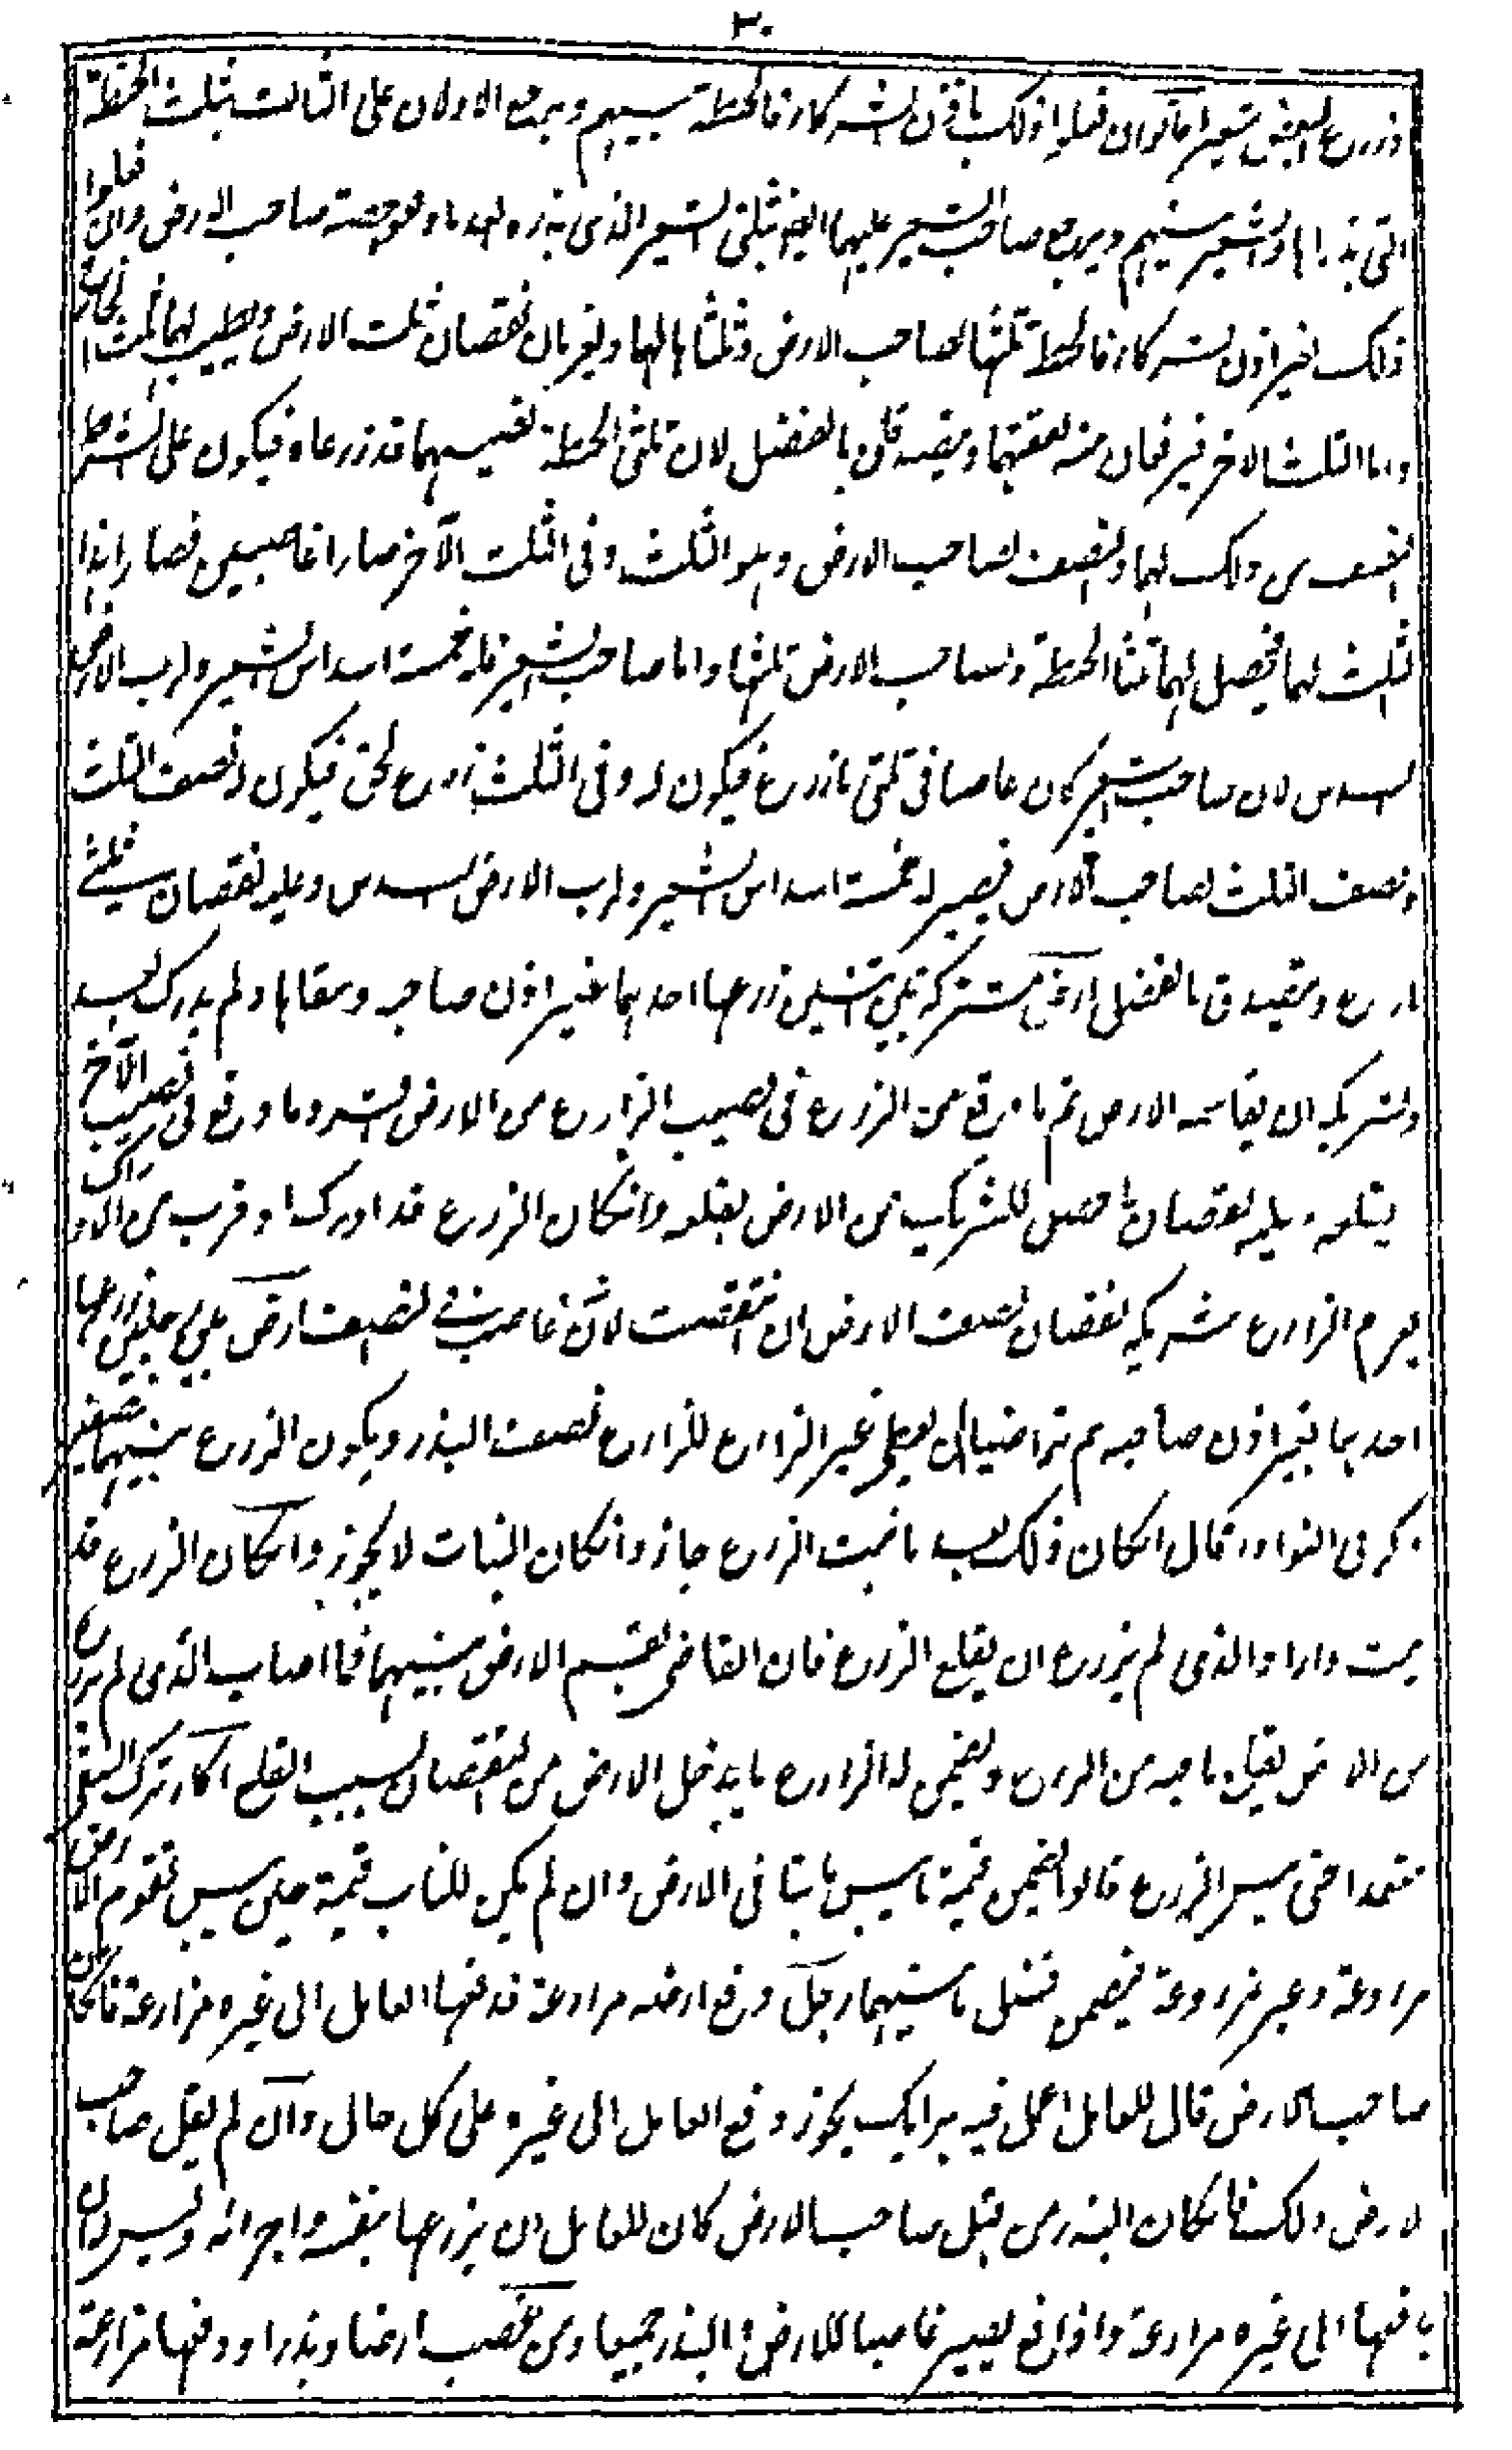 ٢٠
وزرع البعض شعيرا قالوا ان فعلوا ذلك باذن الشركاء فالحنطة بينهم ويرجع الاولان على الثالث بثلث الحنطة
التى بذراها والشعير بينهم ويرجع صاحب الشعير عليهما ايضا بثلثى الشعير الذى بذره لهما وهو حصة صاحب الارض وان فعلوا
ذلك بغير اذن الشركاء فالحنطة ثلثها لصاحب الارض وثلثاها لهما ويغرمان نقصان ثلث الارض ويطيب لهما ثلث الخارج
واما الثلث الآخر فيرفعان منه نفقتهما ويتصدقان بالفضل لان ثلثى الحنطة نصيبهما قد زرعاه فيكون على الشرط
النصف من ذلك لهما والنصف لصاحب الارض وهو الثلث وفى الثلث الآخر صارا غاصبين فصار هذا
الثلث لهما فيحصل لهما ثلثا الحنطة ولصاحب الارض ثلثها واما صاحب الشعير فله خمسة اسداس الشعير ولرب الارض
السدس لان صاحب الشعير كان غاصبا فى ثلثى ما زرع فيكون له وفى الثلث زرع بحق فيكون له نصف الثلث
ونصف الثلث لصاحب الارض فيصير له خمسة اسداس الشعير ولرب الارض السدس وعليه نقصان ثلثى
ما زرع ويتصدق بالفضل ارض مشتركة بين اثنين زرعها احدهما بغير اذن صاحبه وسقاها ولم يدرك بعد
ولشريكه ان يقاسمه الارض ثم ما وقع من الزرع فى نصيب الزارع من الارض اقره وما وقع فى نصيب الآخر
يقلعه وعليه نقصان ما حصل للشريك من الارض بقلعه وان كان الزرع قد ادرك او قرب من الادراك
يغرم الزارع شريكه نقصان نصف الارض ان انتقصت لانه غاصب فى النصف ارض بين رجلين زرعها
احدهما بغير اذن صاحبه ثم تراضيا ان يعطى غير الزارع للزارع نصف البذر ويكون الزرع بينهما نصفين
ذكر فى النوادر قال ان كان ذلك بعد ما نبت الزرع جاز وان كان قبل النبات لا يجوز وان كان الزرع قد
نبت واراد الذى لم يزرع ان يقلع الزرع فان القاضى يقسم الارض بينهما فما اصاب الذى لم يزرع
من الارض يقلع ما فيه من الزرع ويضمن له الزارع ما يدخل الارض من النقصان بسبب القلع اكار ترك السقى
متعمدا حتى يبس الزرع قالوا يضمن قيمة ما يبس نابتا فى الارض وان لم يكن للنابت قيمة حين يبس تقوم الارض
مزروعة وغير مزروعة فيضمن فضل ما بينهما رجل دفع ارضه مزارعة فدفعها العامل الى غيره مزارعة فان كان
صاحب الارض قال للعامل اعمل فيه برأيك يجوز دفع العامل الى غيره على كل حال وان لم يقل صاحب
الارض ذلك فان كان البذر من قبل صاحب الارض كان للعامل ان يزرعها بنفسه واجرائه وليس له ان
يدفعها الى غيره مزارعة واذا دفع يصير غاصبا للارض والبذر جميعا ومن غصب ارضا وبذرا ودفعها مزارعة